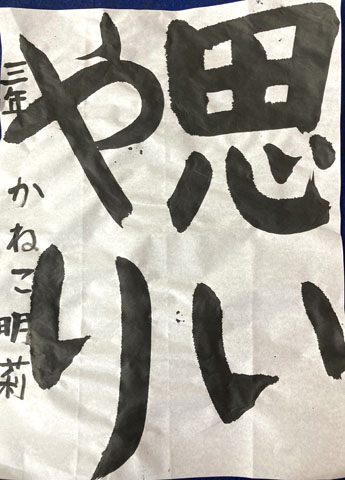 思い
やり
三年 かねこ明莉